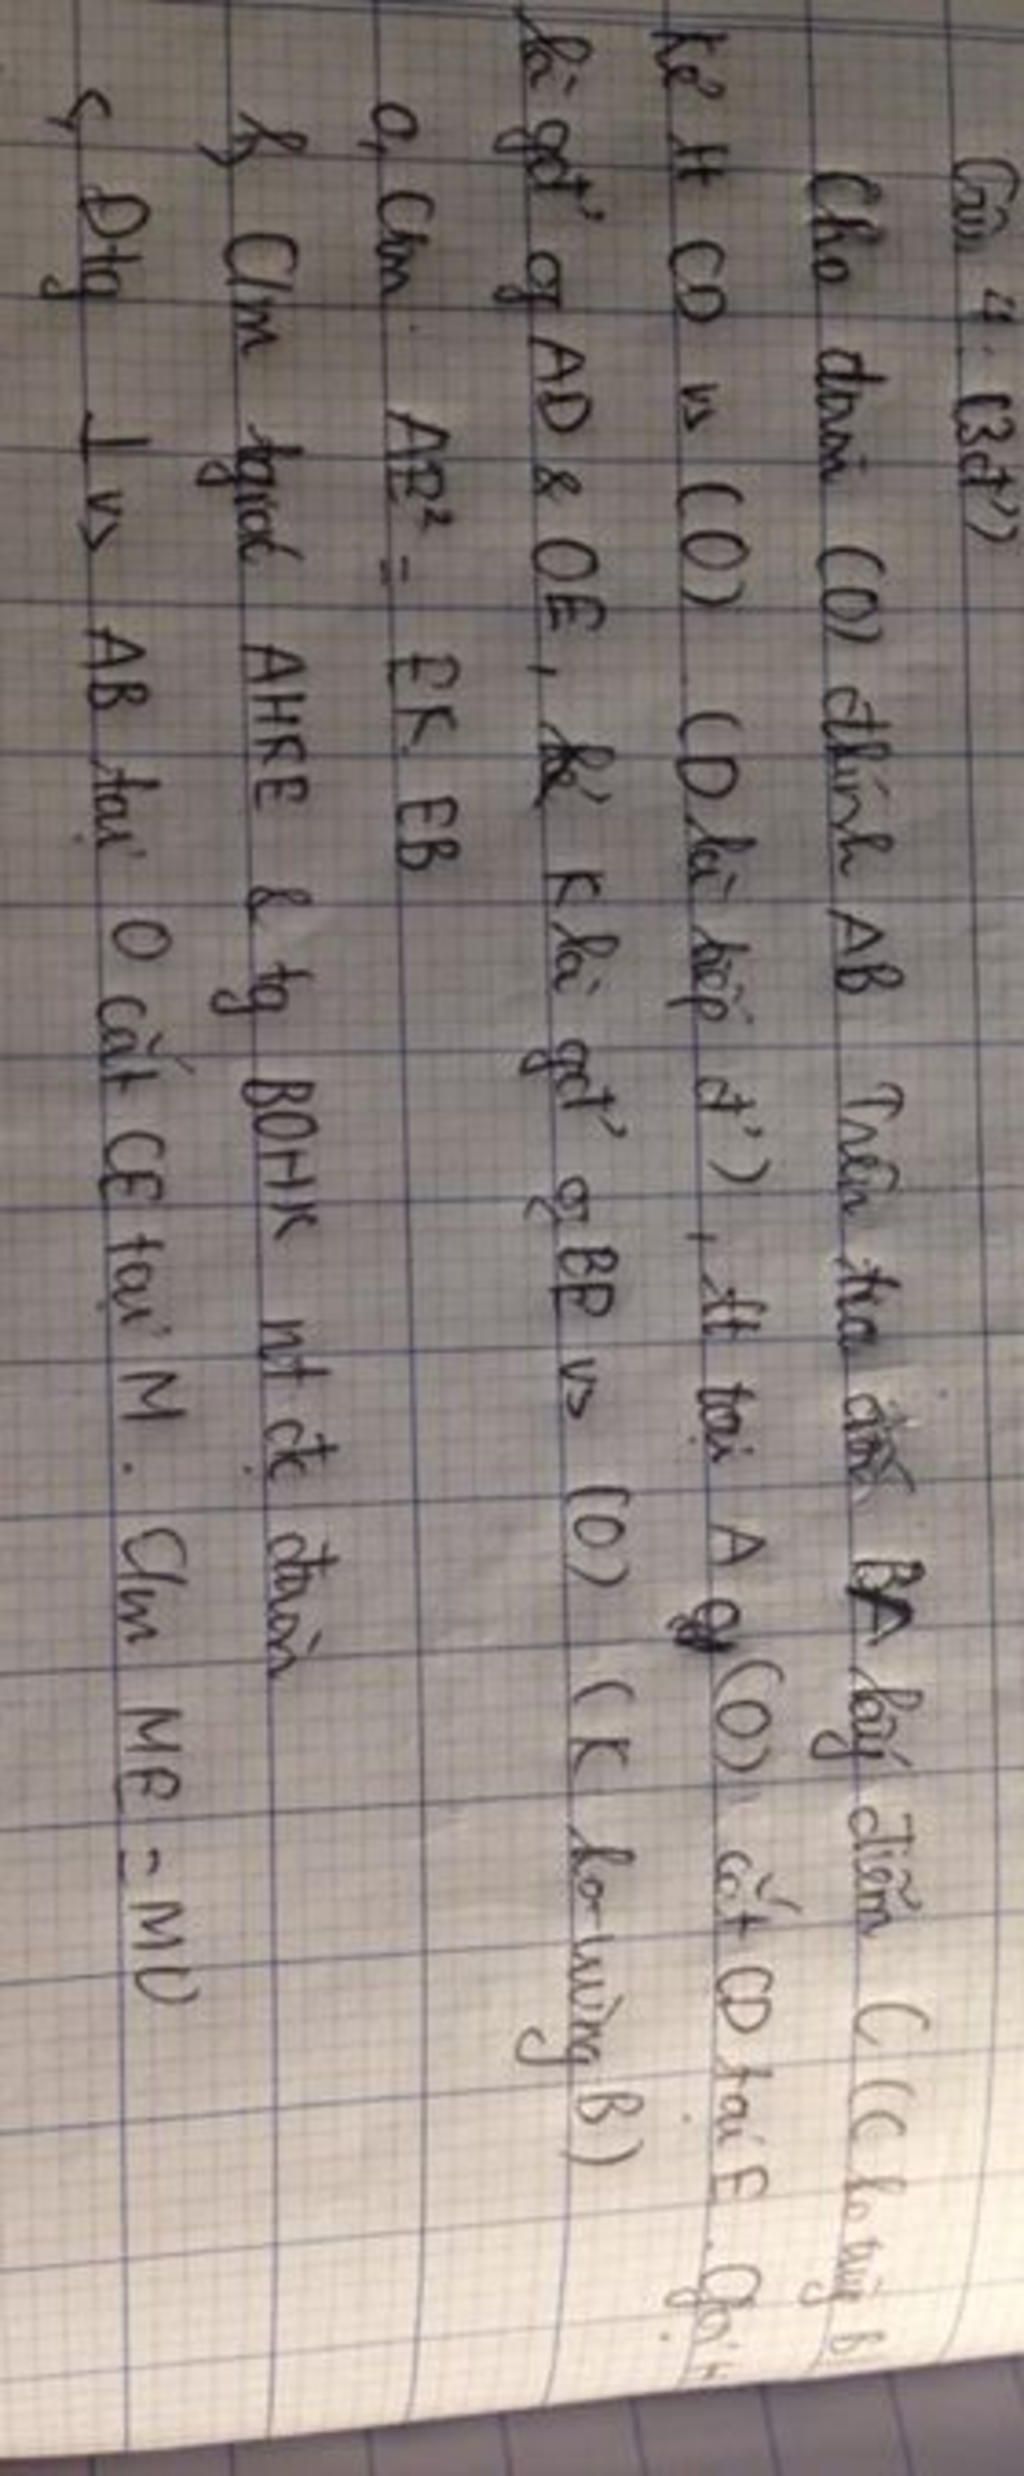 Câu 4: (3đ')
Cho đtròn (O) đkính AB Trên tia đối BA lấy điểm C (C ko trùg B
Kẻ tt CD vs (O) (D là tiếp đ'), tt tại A of (O) cắt CD tại E. Gọi H
là gđ' of AD & OE, K là gđ' of BE vs (O) (K ko trùng B)
a, Cm AE² = EK.EB
b, C/m tgiác AHKE & tg BOHK nt đc đtròn
c, Đtg ⊥ vs AB tại O cắt CE tại M. C/m ME = MO